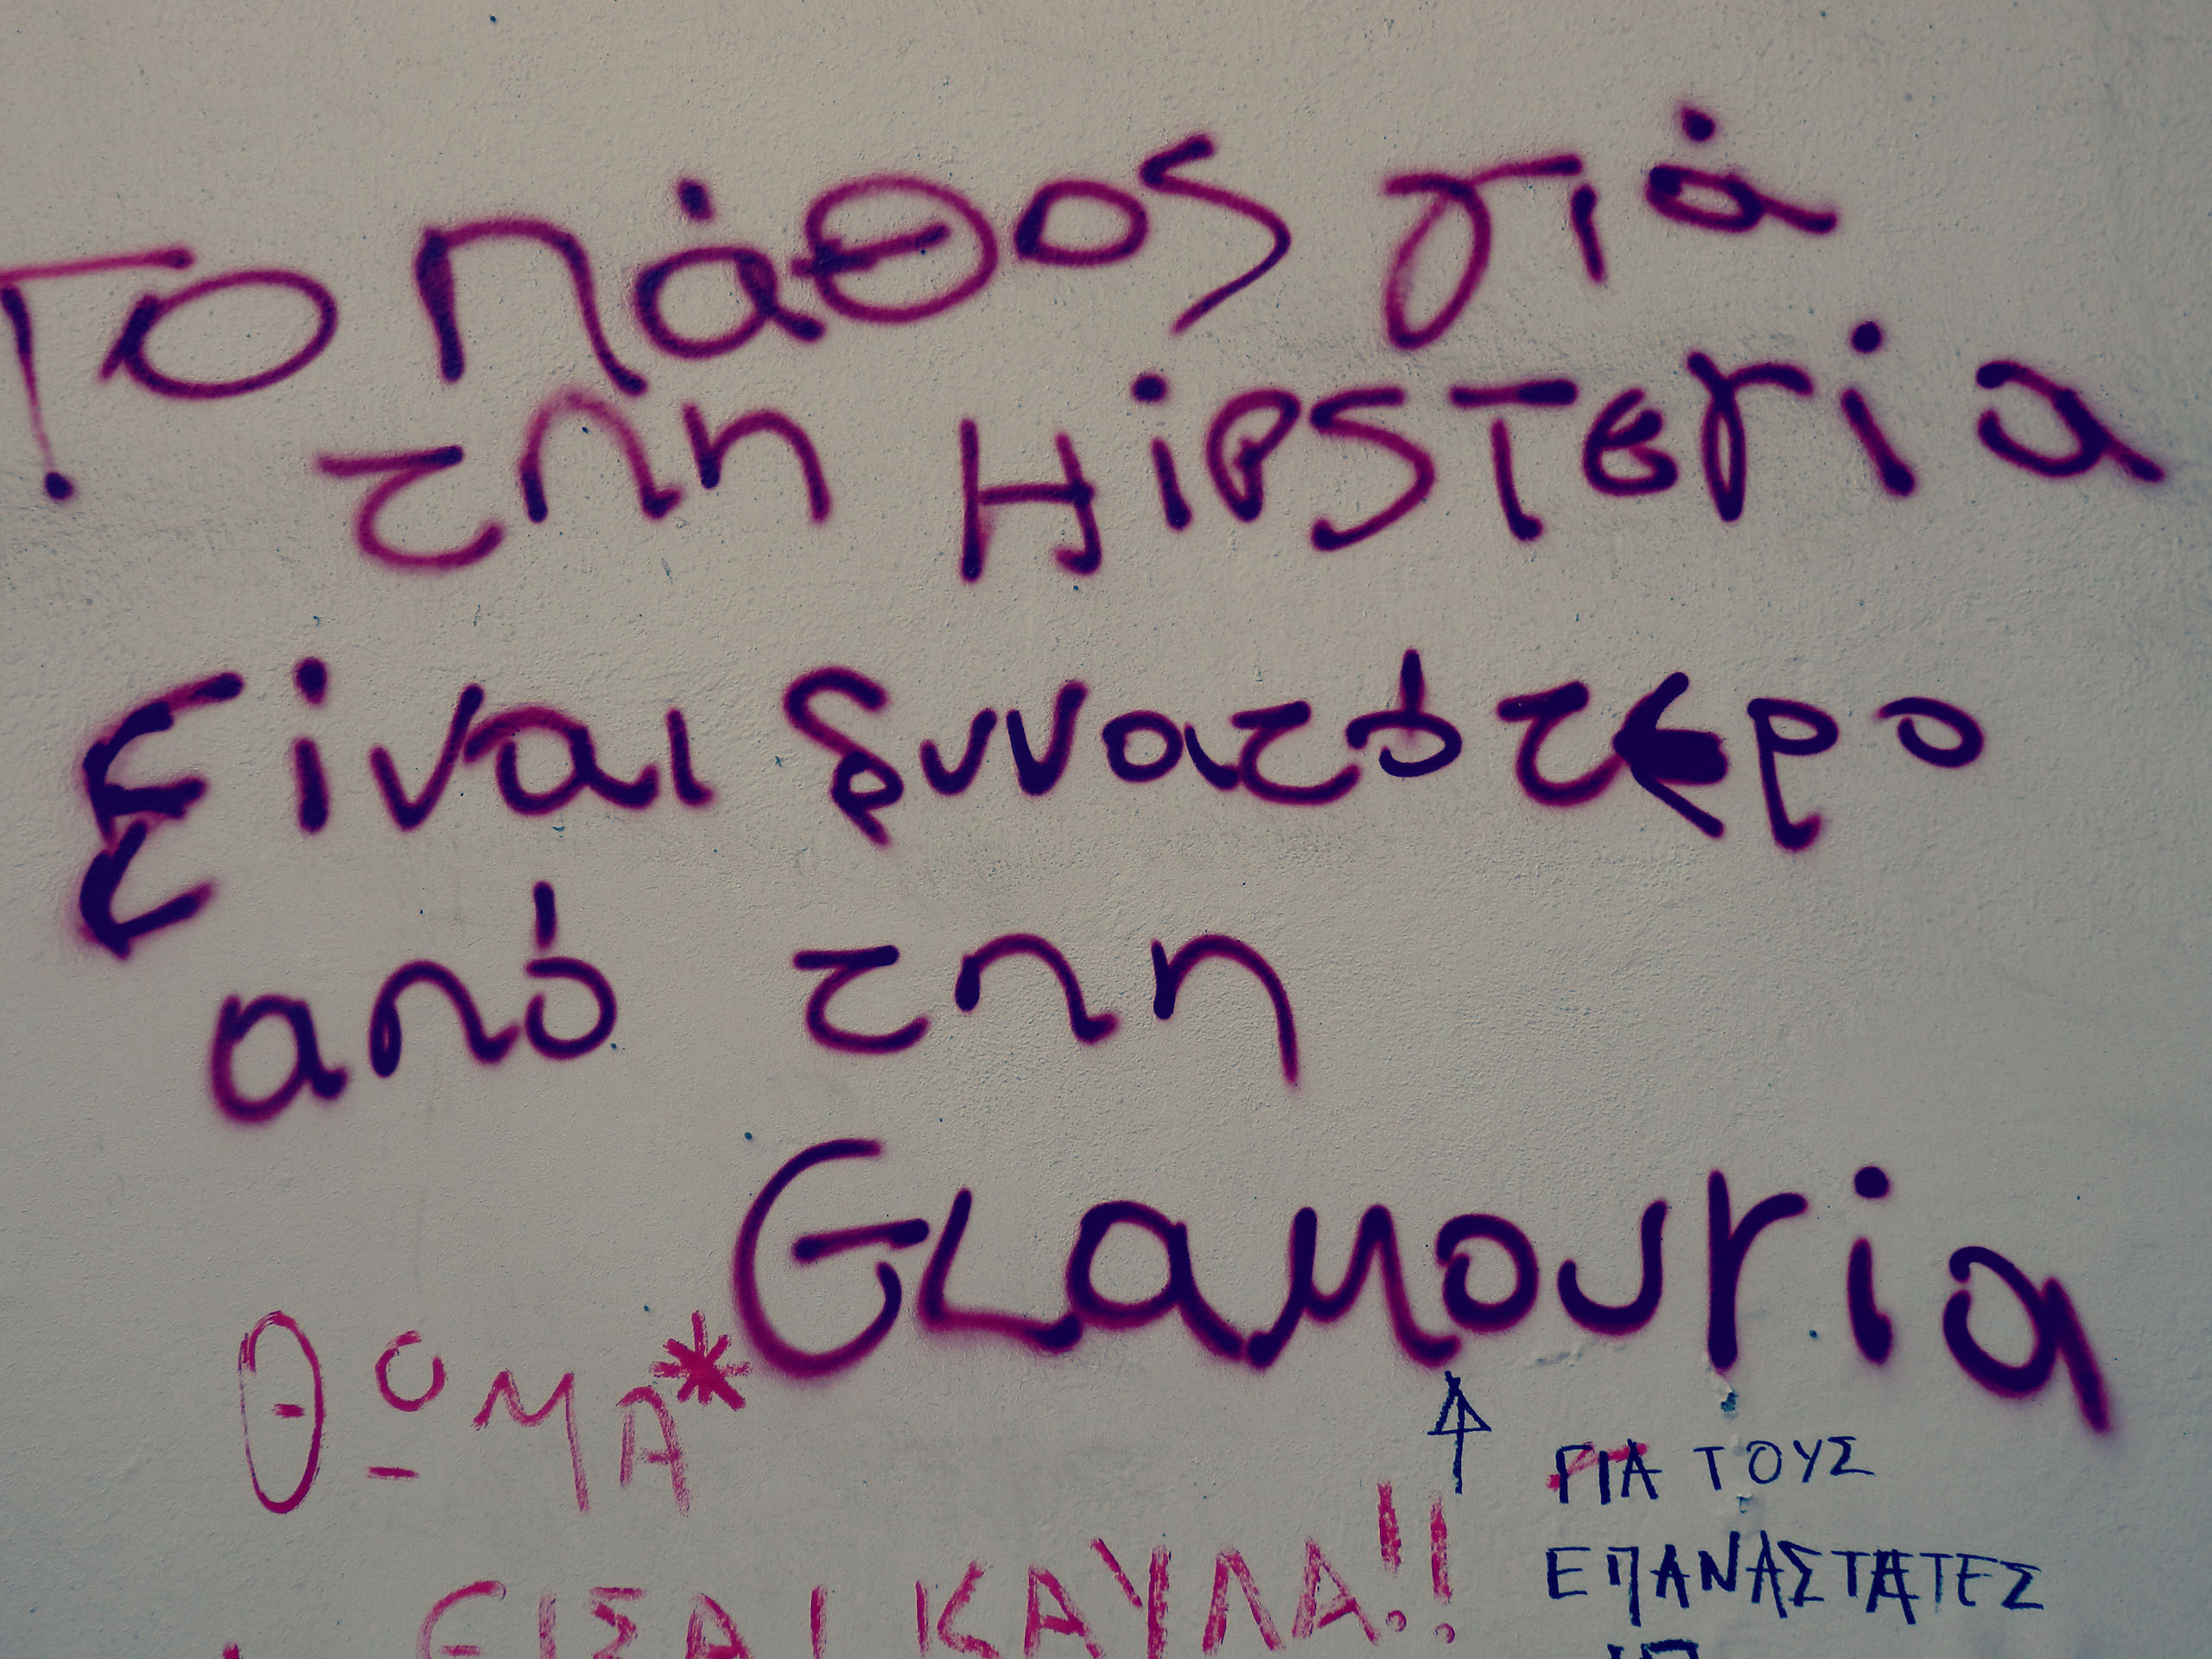 Το πάθος γιά
τηη Hipsteria
Είναι δυνατότερο
από τηη
Glamouria
ΘΩΜΑ*
ΕΙΣΑΙ ΚΑΥΛΑ!!
ΓΙΑ ΤΟΥΣ
ΕΠΑΝΑΣΤΑΤΕΣ